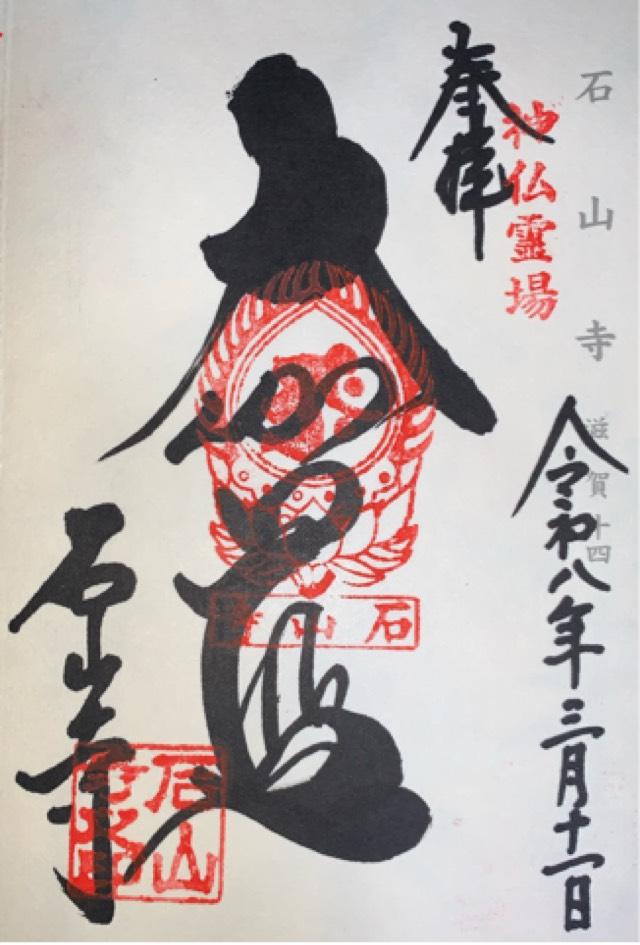 石山寺 滋賀十四
奉拝
神仏靈場
令和八年三月十一日
大伽藍
石山寺
石山寺
石山